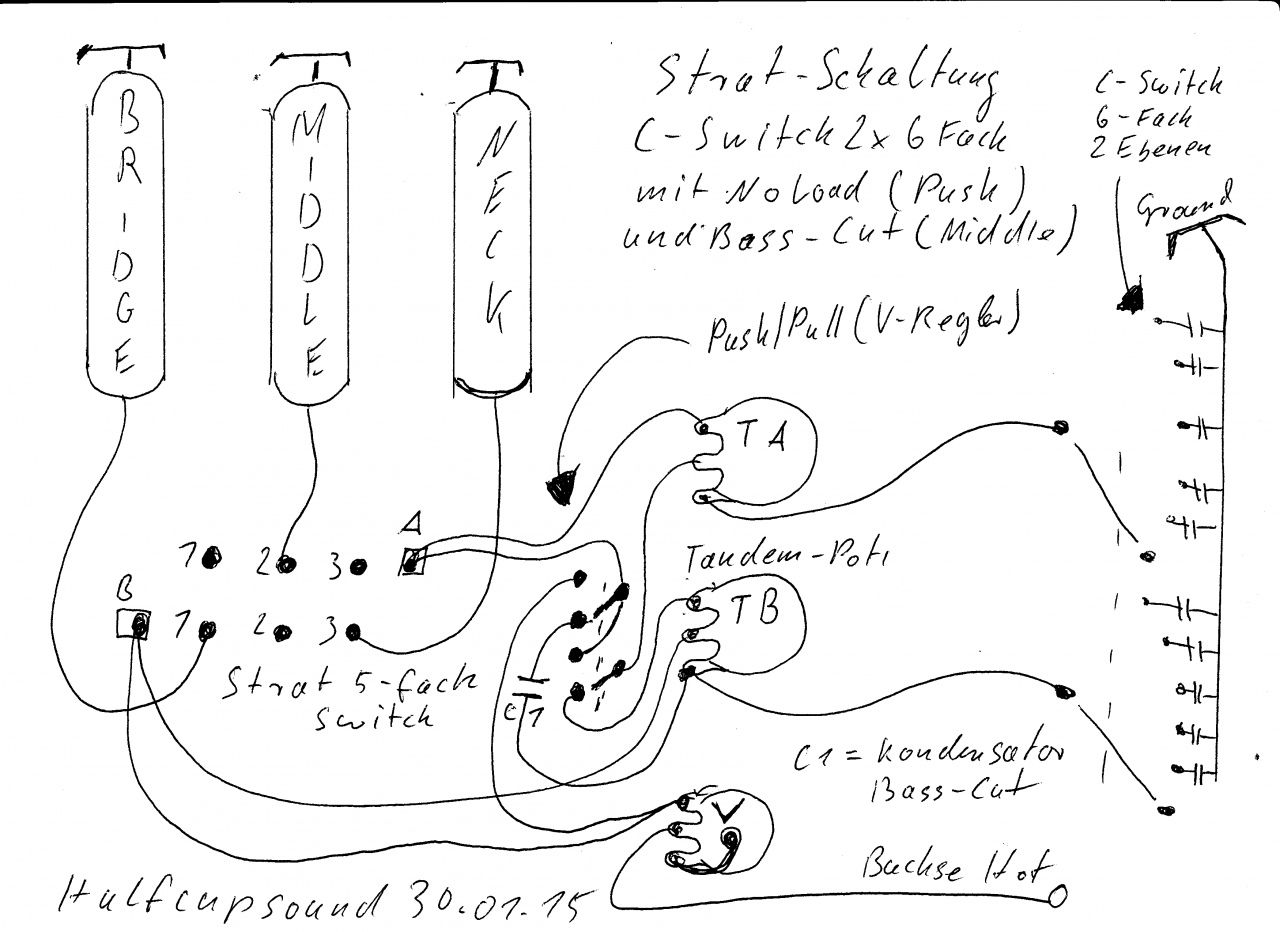 BRIDGE
MIDDLE
NECK
Strat-Schaltung
C-Switch 2x 6 Fach
mit NoLoad (Push)
und Bass-Cut (Middle)
C-Switch
6-Fach
2 Ebenen
Ground
Push/Pull (V-Regler)
TA
A
1 2 3
B
1 2 3
Tandem-Poti
TB
Strat 5-fach
Switch
C1
C1 = Kondensator
Bass-Cut
V
Buchse Hot
Halfcupsound 30.01.15